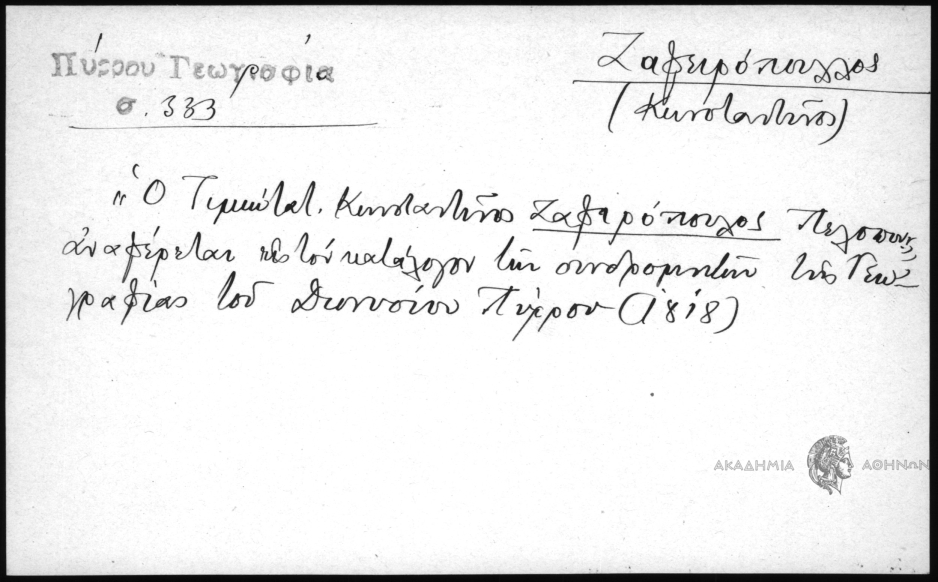 Πύρρου Γεωγραφία
σ. 333
Ζαφειρόπουλος
(Κωνσταντῖνος)
"Ὁ Τιμιώτατ. Κωνσταντῖνος Ζαφειρόπουλος
ἀναφέρεται εἰς τὸν κατάλογον τῶν συνδρομητῶν τῆς Γεω-
γραφίας τοῦ Διονυσίου Πύρρου (1818)
ΑΚΑΔΗΜΙΑ ΑΘΗΝΩΝ